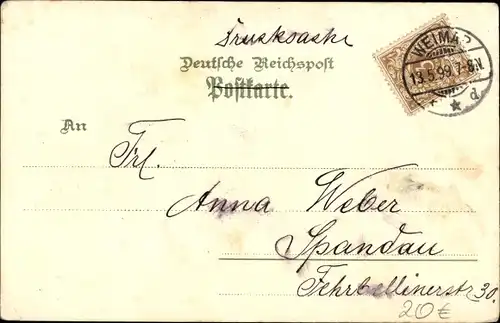 Druksache
Deutsche Reichspost
Postkarte.
WEIMAR
13.5.99.7-8N.
d
An
Frl.
Anna Weber
Spandau
Fehrbellinerstr 30.
20€